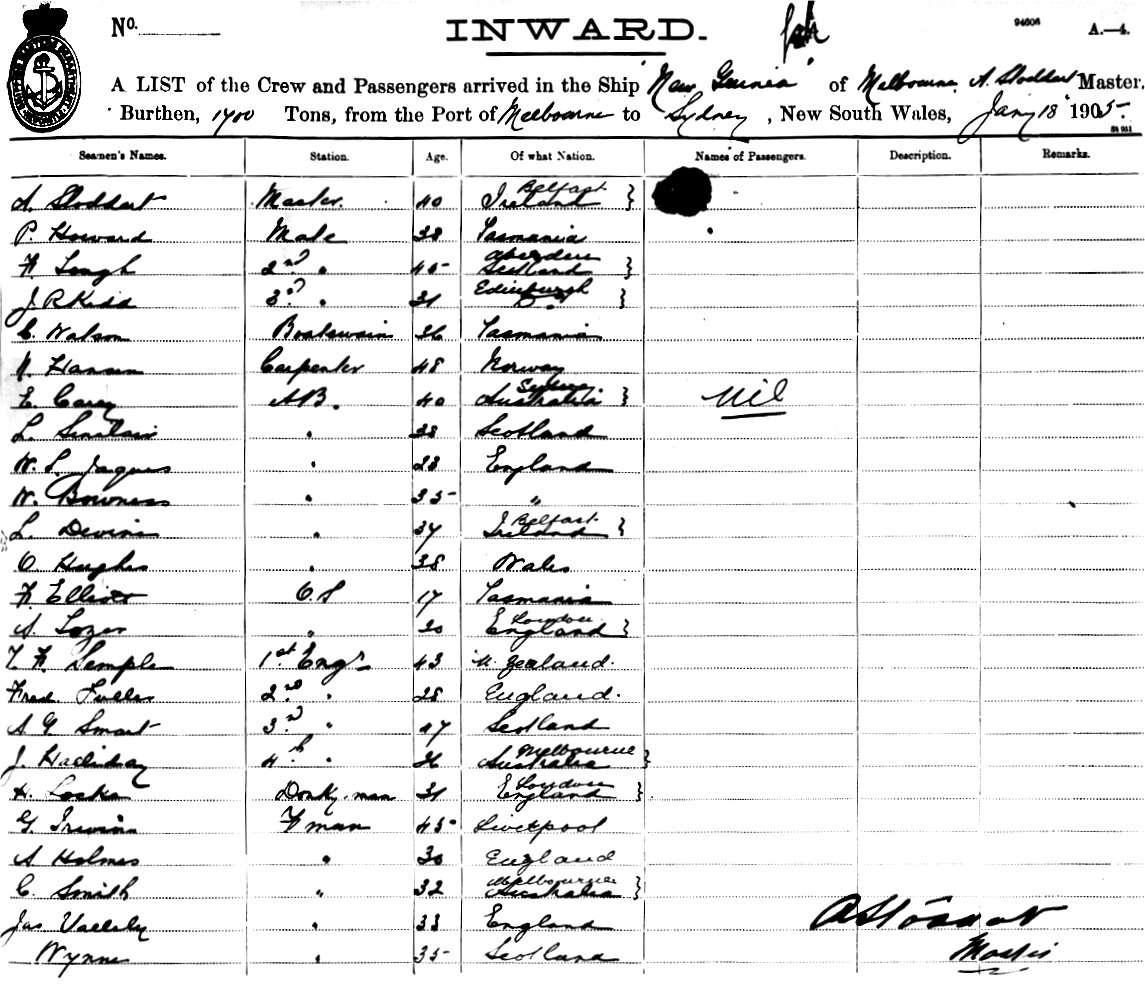 No. INWARD. 94606 A.—4.
A LIST of the Crew and Passengers arrived in the Ship "New Guinea" of Melbourne, A. Stoddart Master.
Burthen, 1400 Tons, from the Port of Melbourne to Sydney, New South Wales, Jany 18 1905.
St 951
Seamen's Names. Station. Age. Of what Nation. Names of Passengers. Description. Remarks.
A. Stoddart Master. 40 Belfast Ireland }
P. Howard Mate 38 Tasmania
2nd " 45 Aberdeen Scotland }
J R Kidd 3rd " 31 Edinburgh Do. }
C. Watson Boatswain 36 Tasmania
N. Hansen Carpenter 48 Norway
E. Carey AB. 40 Sydney Australia } Nil
L. Sinclair " 38 Scotland
W. S. Jaques " 23 England
W. Bowness " 35 "
L. Devine " 37 Belfast Ireland }
O Hughes " 38 Wales
F Elliott O.S 17 Tasmania
A. " 20 London England }
T. F. Semple 1st Engr 43 N. Zealand.
Fred. Fuller 2nd " 28 England.
A G Smart 3rd " 27 Scotland
J. Halliday 4th " 26 Melbourne Australia }
H. Locke Donky-man 31 London England }
G. Irwin F man 45 Liverpool
A Holmes " 30 England
C. Smith " 32 Melbourne Australia }
Jas " 33 England
Wynne " 35 Scotland
A Stoddart
Master